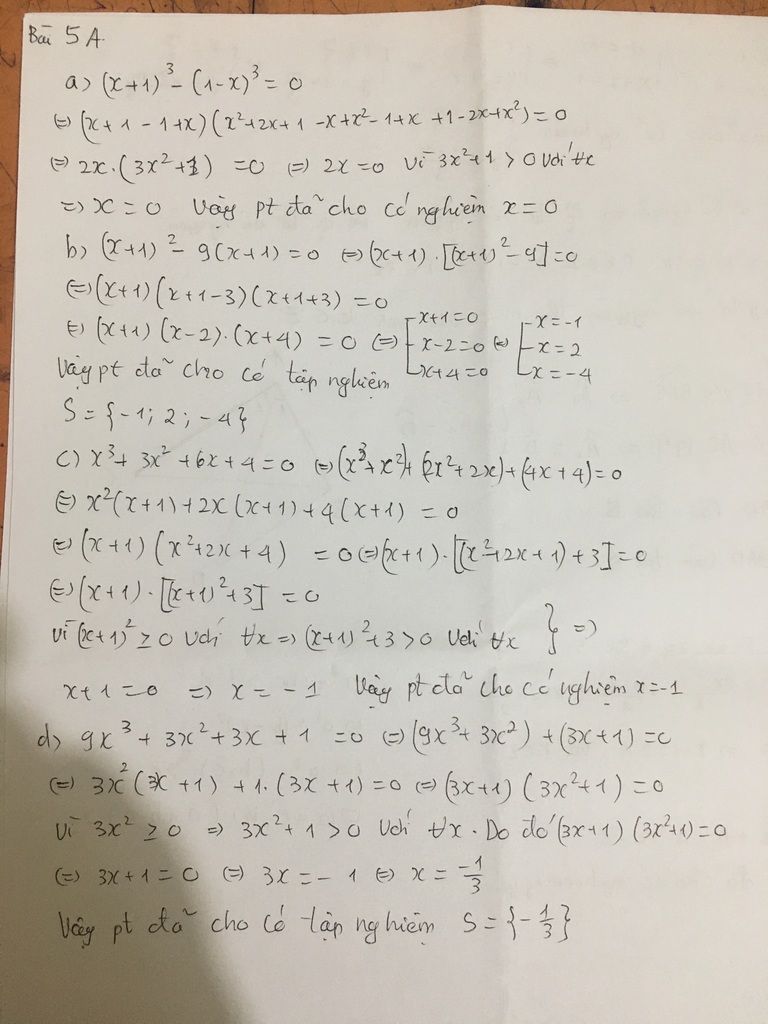 Bài 5A.
a> (x+1)³ - (1-x)³ = 0
(=) (x+1-1+x)(x²+2x+1-x+x²-1+x+1-2x+x²) = 0
(=) 2x.(3x²+1) = 0 (=) 2x=0 vì 3x²+1 > 0 với ∀x
=> x = 0 Vậy pt đã cho có nghiệm x = 0
b> (x+1)² - 9(x+1) = 0 (=) (x+1).[(x+1)²-9]=0
(=) (x+1)(x+1-3)(x+1+3) = 0
(=) (x+1)(x-2).(x+4) = 0 (=) [x+1=0 x-2=0 x+4=0 (=) [x=-1 x=2 x=-4
Vậy pt đã cho có tập nghiệm
S = {-1; 2; -4}
c) x³+3x²+6x+4=0 (=) (x³+x²)+(2x²+2x)+(4x+4)=0
(=) x²(x+1)+2x(x+1)+4(x+1) = 0
(=) (x+1)(x²+2x+4) = 0 (=) (x+1).[(x²+2x+1)+3]=0
(=) (x+1).[(x+1)²+3] = 0
vì (x+1)² ≥ 0 với ∀x => (x+1)²+3>0 với ∀x } =>
x+1=0 => x = -1 Vậy pt đã cho có nghiệm x=-1
d> 9x³ + 3x² + 3x + 1 = 0 (=) (9x³+3x²)+(3x+1)=0
(=) 3x²(3x+1) + 1.(3x+1)=0 (=) (3x+1)(3x²+1) = 0
vì 3x² ≥ 0 => 3x²+1 > 0 với ∀x. Do đó (3x+1)(3x²+1)=0
(=) 3x+1=0 (=) 3x=-1 (=) x = -1/3
Vậy pt đã cho có tập nghiệm S = {-1/3}